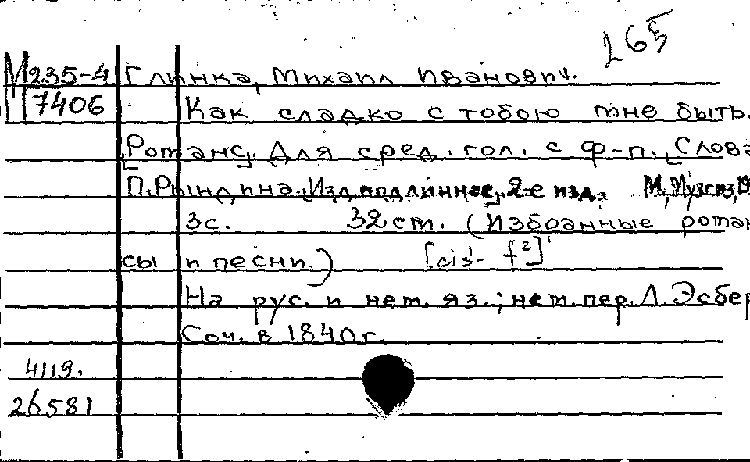 265
М235-4 Глинка, Михаил Иванович.
7406 Как сладко с тобою мне быть.
[Романс]. Для сред. гол. с ф-п. [Слова
П. Рындина. Изд. подлинное, 2-е изд. М., Музгиз, 19
3с. 32 ст. (Избранные роман
сы и песни.) [cis¹- f²]
На рус. и нем. яз.; нем. пер. Л. Эсбер
Соч. в 1840 г.
4119.
26581